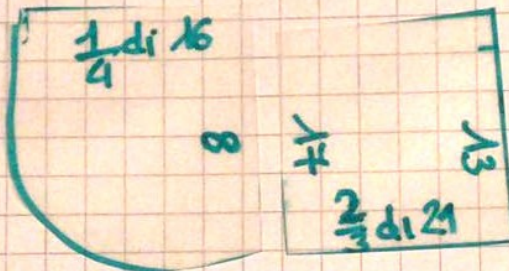 1/4 di 16
8
17
13
2/3 di 21